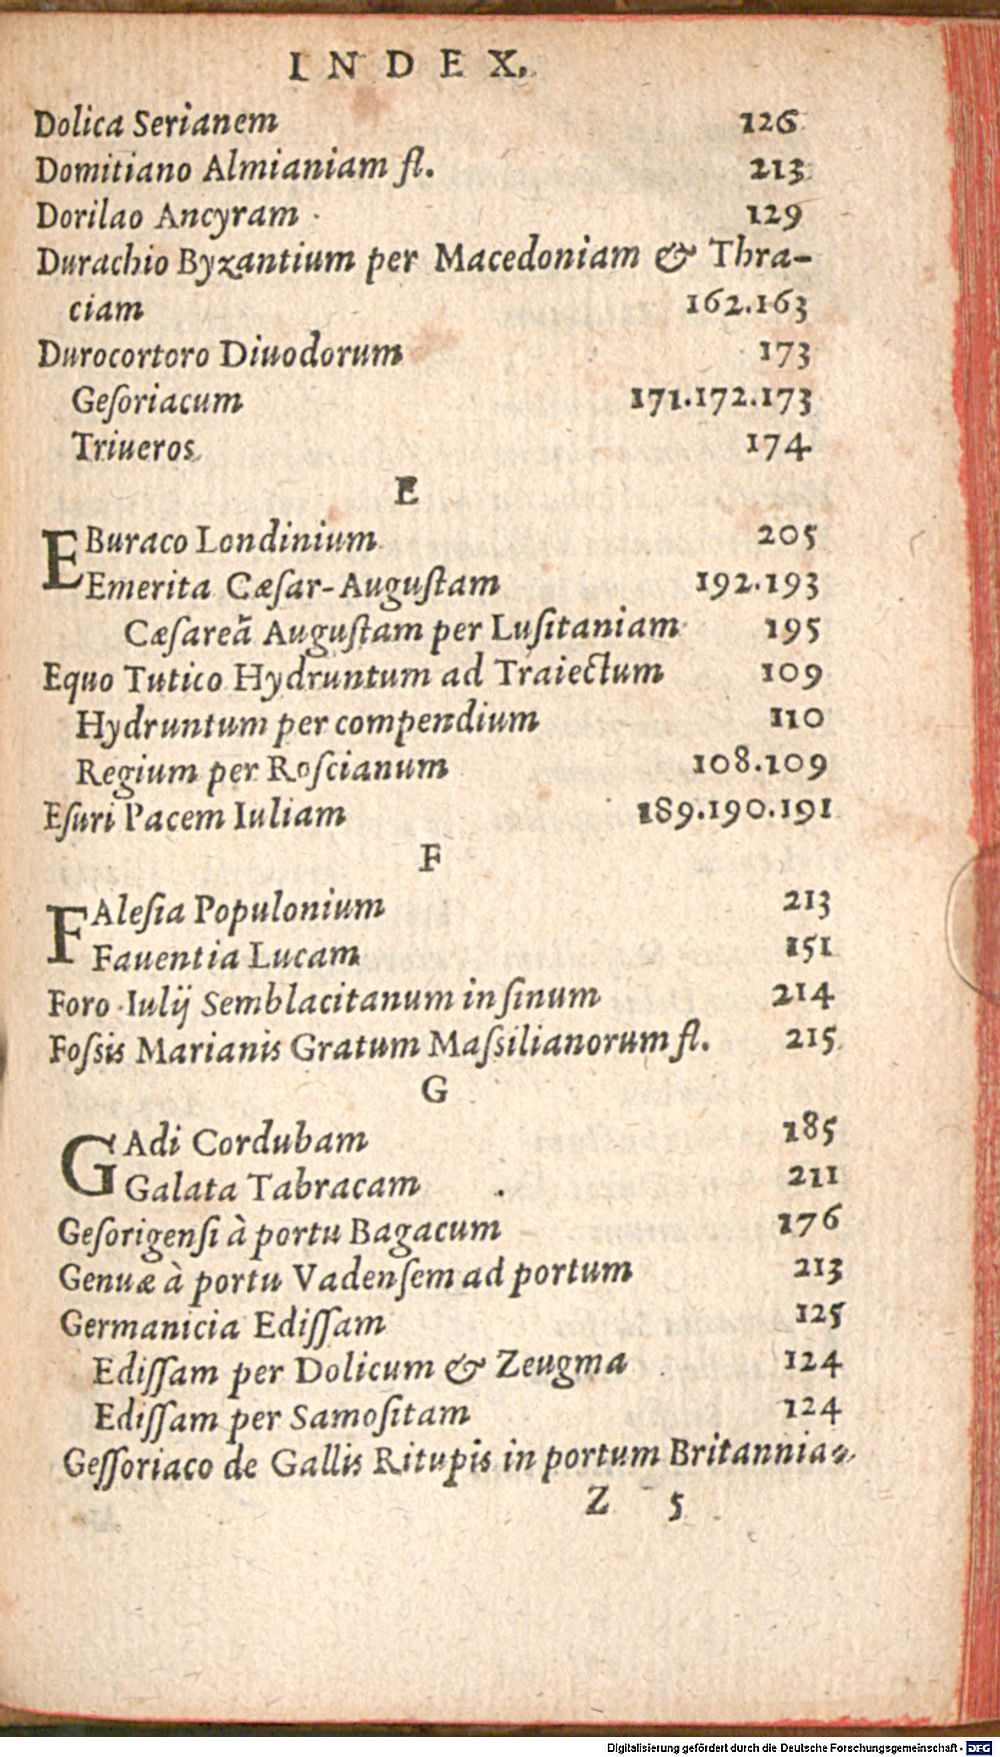 INDEX.
Dolica Serianem 126
Domitiano Almianiam fl. 213
Dorilao Ancyram 129
Durachio Byzantium per Macedoniam & Thra-
ciam 162.163
Durocortoro Diuodorum 173
Geſoriacum 171.172.173
Triueros 174
E
EBuraco Londinium 205
Emerita Cæſar-Auguſtam 192.193
Cæſareã Auguſtam per Luſitaniam 195
Equo Tutico Hydruntum ad Traiectum 109
Hydruntum per compendium 110
Regium per Roſcianum 108.109
Eſuri Pacem Iuliam 189.190.191
F
FAleſia Populonium 213
Fauentia Lucam 151
Foro Iulij Semblacitanum in ſinum 214
Foſsis Marianis Gratum Maſsilianorum fl. 215
G
GAdi Cordubam 185
Galata Tabracam 211
Geſorigenſi à portu Bagacum 176
Genuæ à portu Vadenſem ad portum 213
Germanicia Ediſſam 125
Ediſſam per Dolicum & Zeugma 124
Ediſſam per Samoſitam 124
Geſſoriaco de Gallis Ritupis in portum Britannia-
Z 5
Digitalisierung gefördert durch die Deutsche Forschungsgemeinschaft - DFG